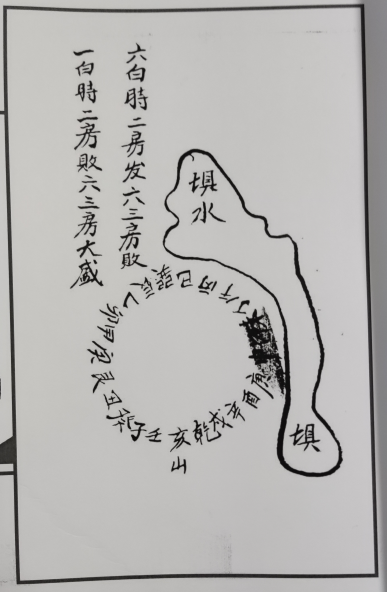 六白時二房发六三房敗
一白時二房敗六三房大盛
埧水
丁午丙巳巽辰乙卯甲寅艮丑癸子壬亥乾戌辛酉庚
山
埧